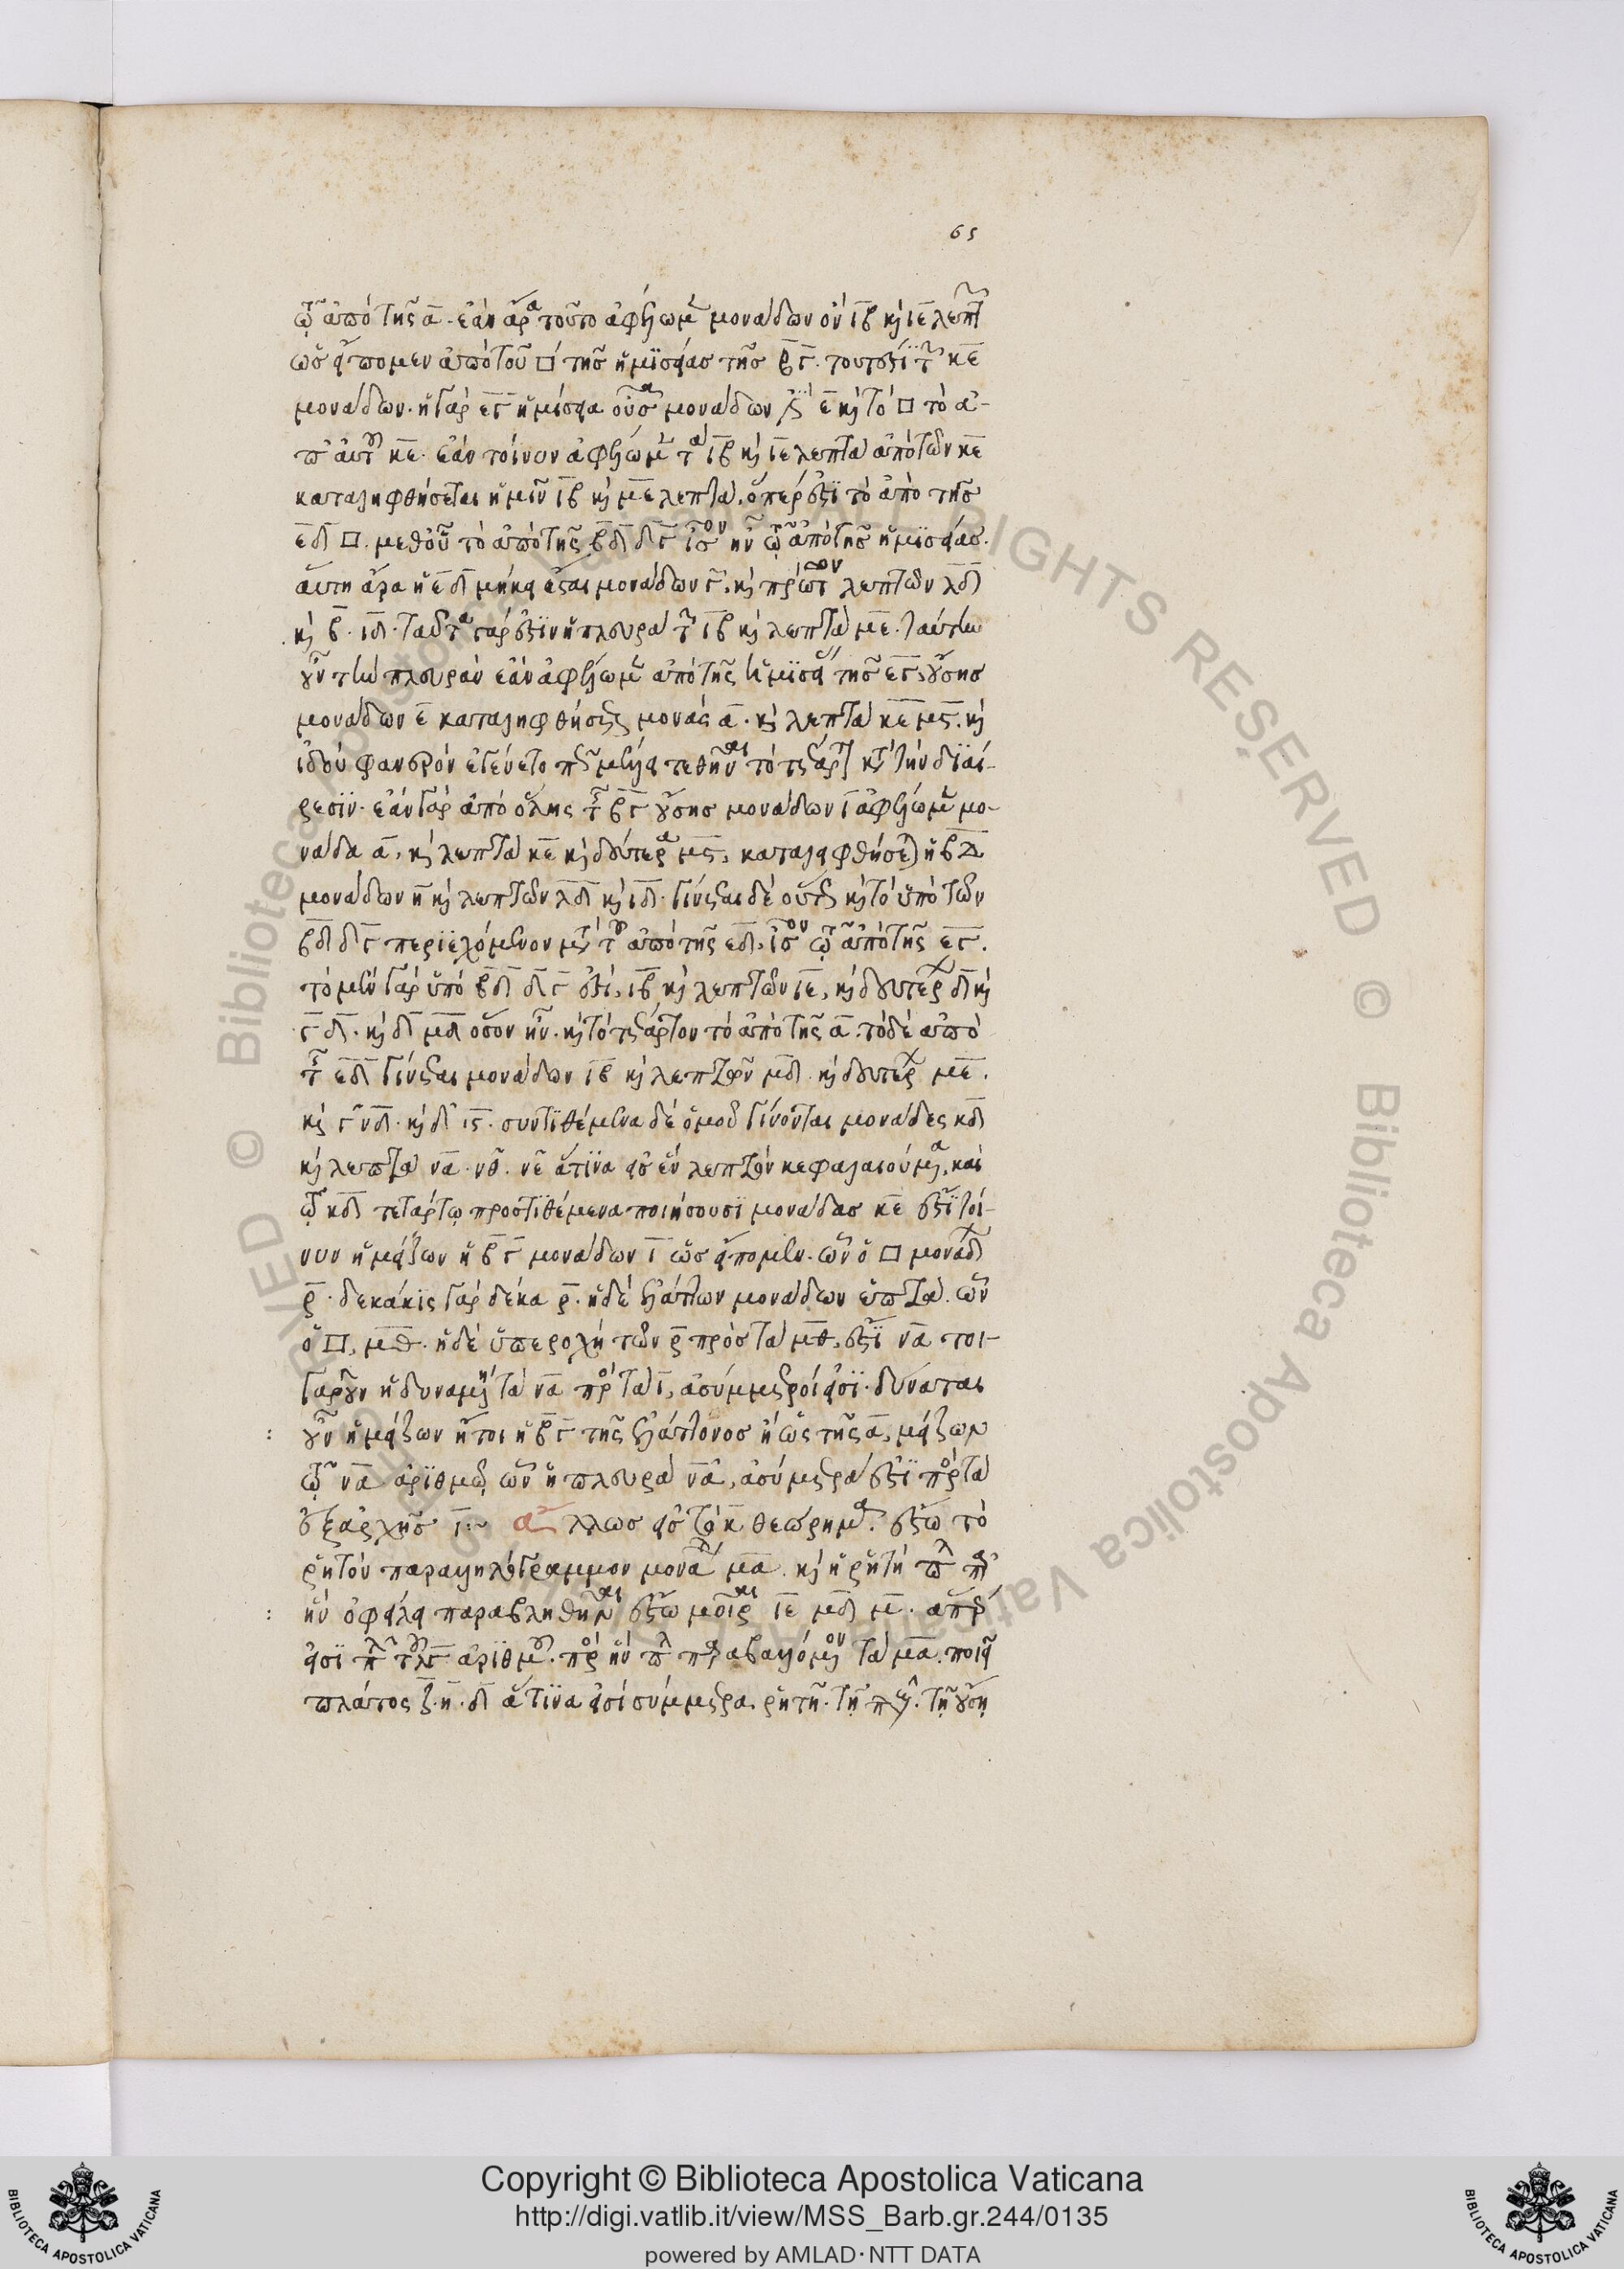 65
ῷ ἀπὸ τῆς α. ἐὰν ἄρα τοῦτο ἀφέλωμεν μονάδων ὂν ιβ καὶ ιε λεπτ
ὡς εἴπομεν ἀπὸ τοῦ □ τῆς ἡμισείας τῆς βγ. τουτέστι τῶν κε
μονάδων. ἡ γὰρ εγ ἡμίσεια οὖσα μονάδων ἐστὶ ε καὶ τὸ □ τὸ ἀ-
π αὐτῆς κε. ἐὰν τοίνυν ἀφέλωμεν τὰ ιβ καὶ ιε λεπτὰ ἀπὸ τῶν κε
καταληφθήσεται ἡμῖν ιβ καὶ με λεπτὰ, ὅπερ ἐστὶ τὸ ἀπὸ τῆς
εδ □. μεθ οὗ τὸ ἀπὸ τῆς βδ δγ ἴσον ἦν ῷ ἀπὸ τῆς ἡμισείας.
αὕτη ἄρα ἡ εδ μήκει ἔσται μονάδων γ, καὶ πρώτων λεπτῶν λδ
καὶ β. ιδ. ταῦτα γάρ ἐστιν ἡ πλευρὰ τῶν ιβ καὶ λεπτὰ με. ταύτην
οὖν τὴν πλευρὰν ἐὰν ἀφέλωμεν ἀπὸ τῆς ἡμισείας τῆς εγ, οὔσης
μονάδων ε καταληφθήσεται μονὰς α. καὶ λεπτὰ κε μς. καὶ
ἰδοὺ φανερὸν ἐγένετο πῶς μέλλει τεθῆναι τὸ τέταρτον κατὰ τὴν διαί-
ρεσιν. ἐὰν γὰρ ἀπὸ ὅλης τῆς βγ οὔσης μονάδων ι ἀφέλωμεν μο-
νάδα α, καὶ λεπτὰ κε καὶ δεύτερα μς, καταλειφθήσεται ἡ βδ
μονάδων η καὶ λεπτῶν λδ καὶ ιδ. γίνεται δὲ οὕτως καὶ τὸ ὑπὸ τῶν
βδ δγ περιεχόμενον μετὰ τοῦ ἀπὸ τῆς εδ, ἴσον ῷ ἀπὸ τῆς εγ.
τὸ μὲν γὰρ ὑπὸ βδ δγ ἐστὶ, ιβ καὶ λεπτῶν ιε, καὶ δευτέρων δ καὶ
γ δ. καὶ δ μδ ὅσον ἦν. καὶ τὸ τέταρτον τὸ ἀπὸ τῆς α. τὸ δὲ ἀπὸ
τῆς εδ γίνεται μονάδων ιβ καὶ λεπτῶν μδ καὶ δευτέρων με.
καὶ γ νδ. καὶ δ ις. συντιθέμενα δὲ ὁμοῦ γίνονται μονάδες κδ
καὶ λεπτὰ να. νθ. νε ἅτινα εἰς ἓν λεπτὸν κεφαλαιούμενα, καὶ
ῷ κδ τετάρτῳ προστιθέμενα ποιήσουσι μονάδας κε ἔστι τοί-
νυν ἡ μείζων ἡ βγ μονάδων ι ὡς εἴπομεν. ὧν ὁ □ μονάδων
ρ. δεκάκις γὰρ δέκα ρ. ἡ δὲ ἐλάττων μονάδων ἑπτὰ. ὧν
ὁ □, μθ. ἡ δὲ ὑπεροχὴ τῶν ρ πρὸς τὰ μθ, ἐστὶ να τοι-
γαροῦν ἡ δυναμένη τὰ να πρὸς τὰ ι, ἀσύμμετροί εἰσι. δύναται
οὖν ἡ μείζων ἤτοι ἡ βγ τῆς ἐλάττονος ἡ ὡς τῆς α, μείζων
ῷ να ἀριθμῷ ὧν ἡ πλευρὰ να, ἀσύμετρά ἐστι πρὸς τὰ
ἐξ ἀρχῆς ι:~ ἄλλως εἰς τὸ κ θεώρημα. ἔστω τὸ
ῥητὸν παραλληλόγραμμον μονάδων μα. καὶ ἡ ῥητὴ
ἣν ὀφείλει παραβληθῆναι ἔστω μοῖραι ιε μδ μ. ἅπερ
εἰσὶ ἀριθμοῦ. πρὸς ἣν παραβαλλόμενον τὰ μα. ποιεῖ
πλάτος ζ. η. δ ἅτινα εἰσὶ σύμμετρα ῥητῆ. τῆ. τῇ οὔσῃ